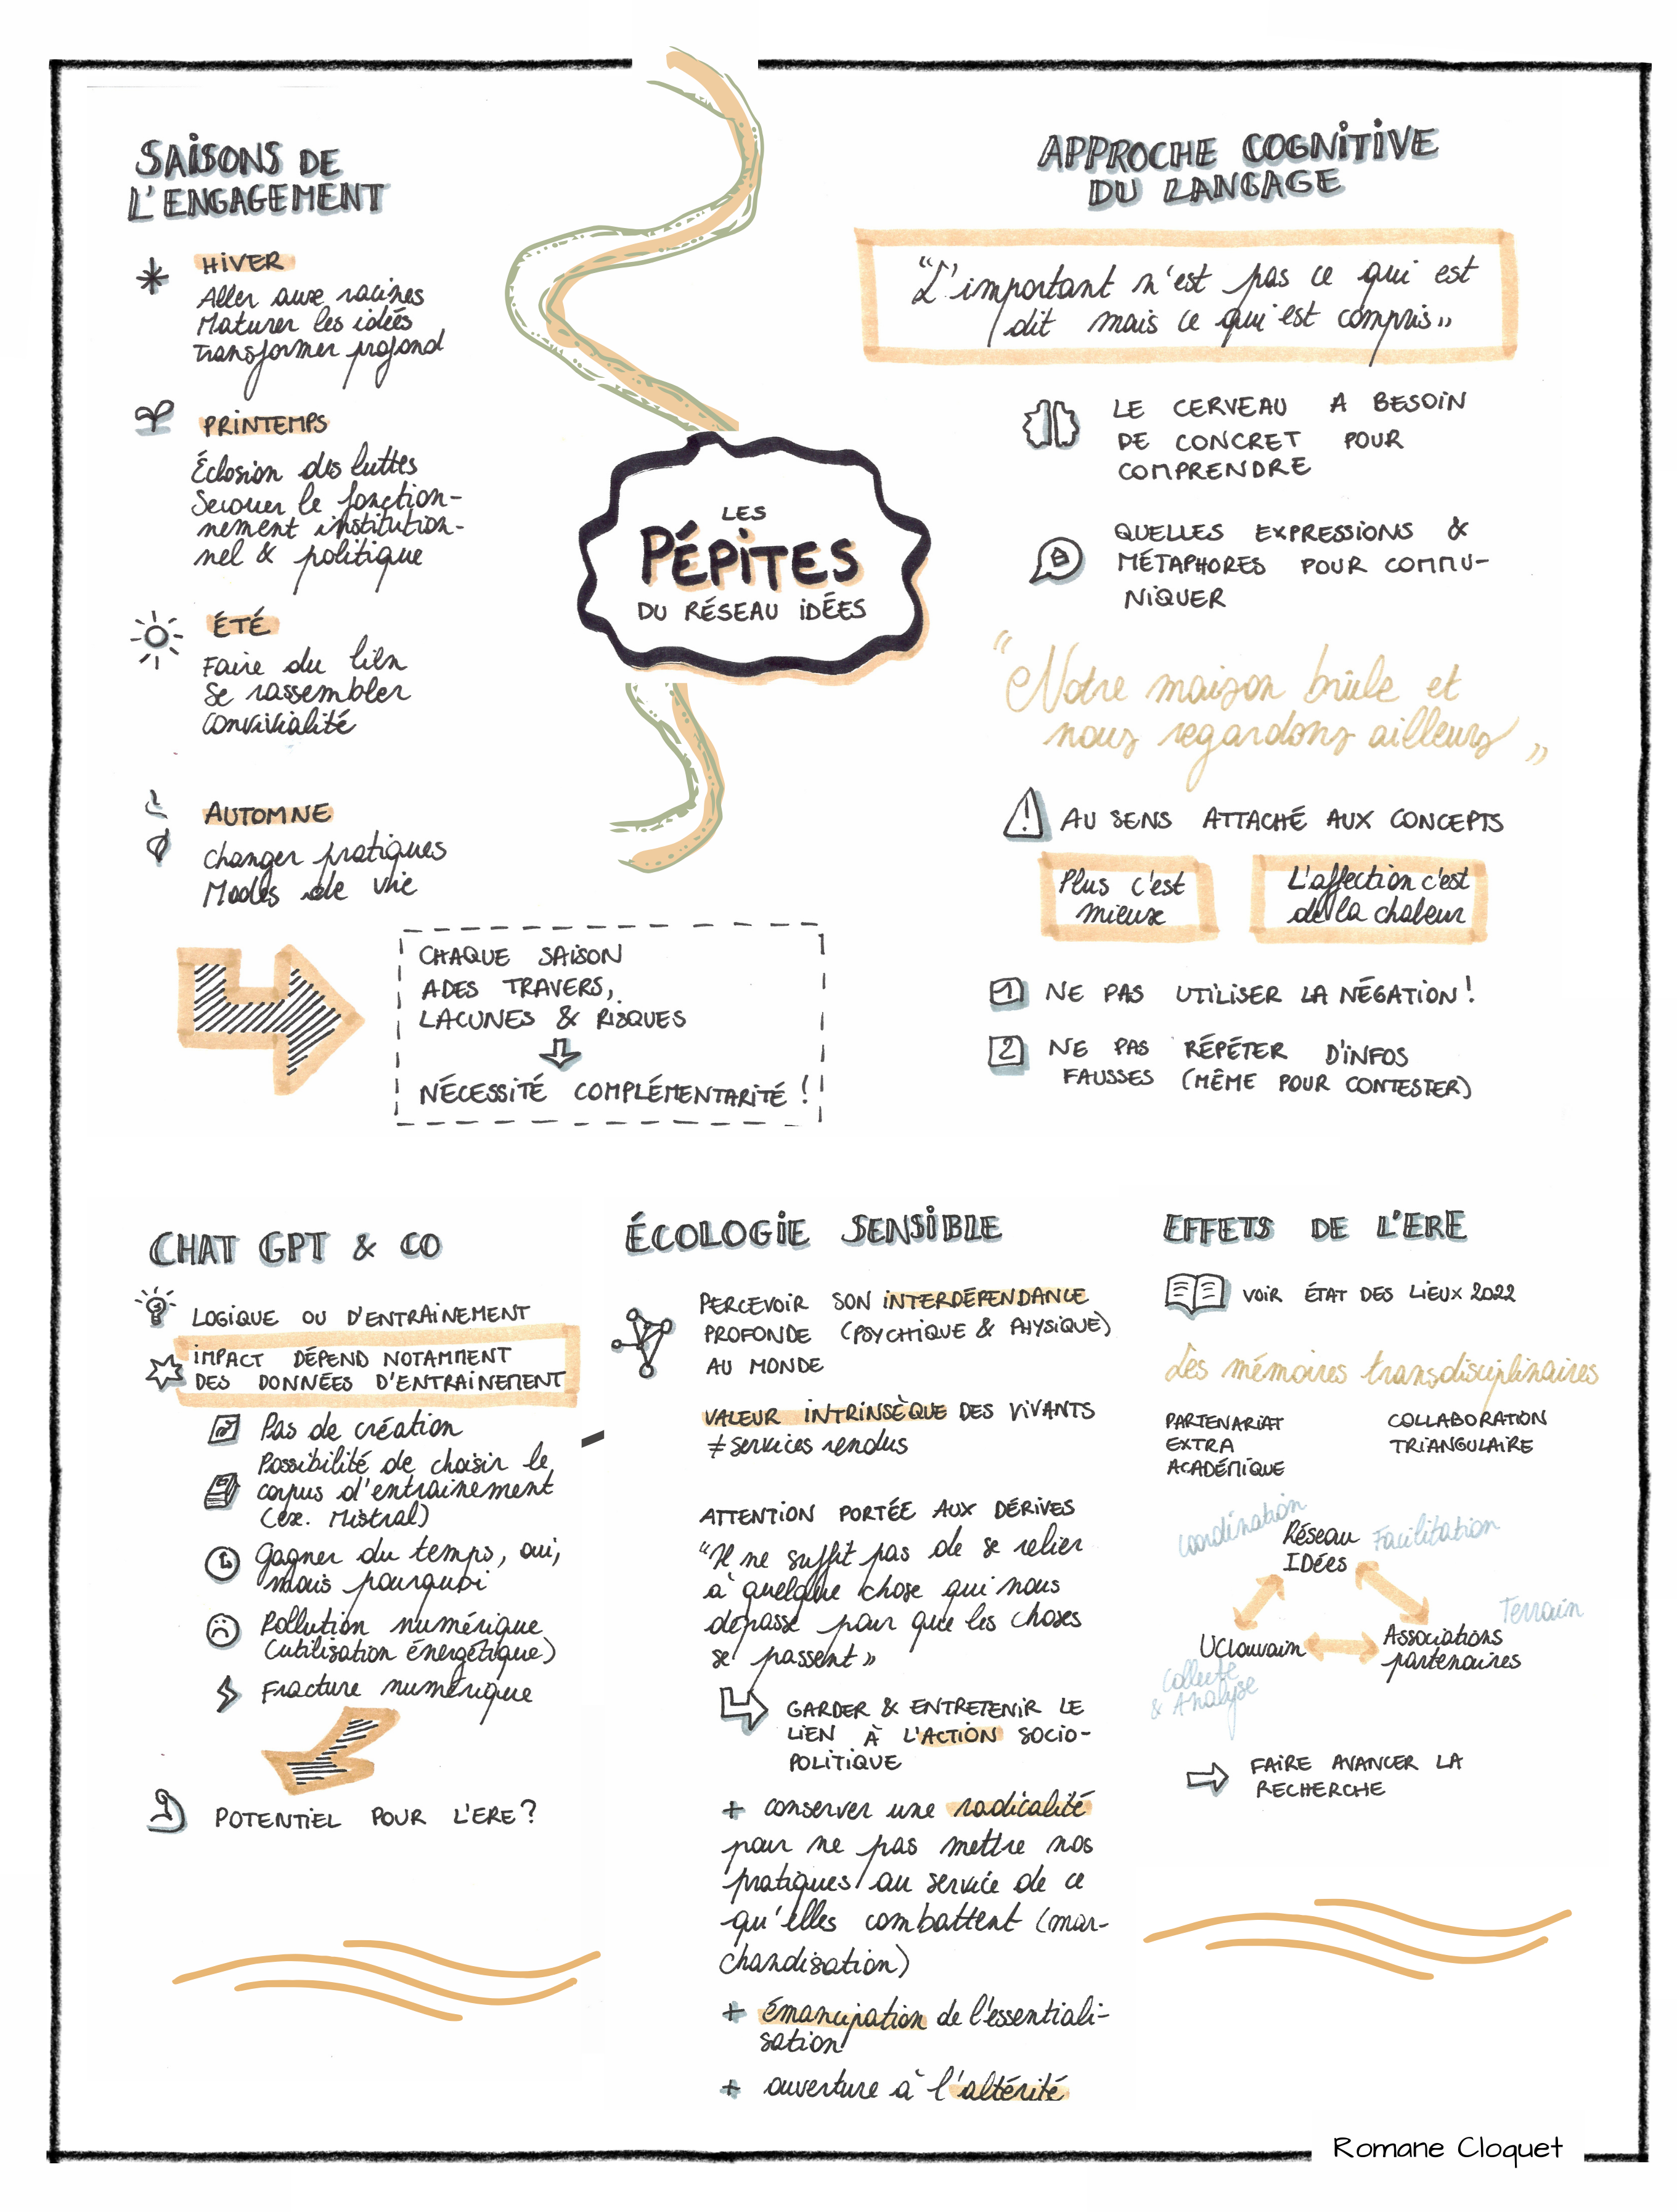 SAISONS DE
L'ENGAGEMENT
HIVER
Aller aux racines
Maturer les idées
Transformer profond
PRINTEMPS
Éclosion des luttes
Secouer le fonction-
nement institution-
nel & politique
ÉTÉ
Faire du lien
Se rassembler
Convivialité
AUTOMNE
Changer pratiques
Modes de vie
CHAQUE SAISON
A DES TRAVERS,
LACUNES & RISQUES
NÉCESSITÉ COMPLÉMENTARITÉ !
LES
PÉPITES
DU RÉSEAU IDÉES
APPROCHE COGNITIVE
DU LANGAGE
"L'important n'est pas ce qui est
dit mais ce qui est compris"
LE CERVEAU A BESOIN
DE CONCRET POUR
COMPRENDRE
QUELLES EXPRESSIONS &
MÉTAPHORES POUR COMMU-
NIQUER
"Notre maison brûle et
nous regardons ailleurs"
AU SENS ATTACHÉ AUX CONCEPTS
Plus c'est
mieux
L'affection c'est
de la chaleur
1 NE PAS UTILISER LA NÉGATION !
2 NE PAS RÉPÉTER D'INFOS
FAUSSES (MÊME POUR CONTESTER)
CHAT GPT & CO
LOGIQUE OU D'ENTRAINEMENT
IMPACT DÉPEND NOTAMMENT
DES DONNÉES D'ENTRAINEMENT
Pas de création
Possibilité de choisir le
corpus d'entrainement
(ex. Mistral)
Gagner du temps, oui,
mais pourquoi
Pollution numérique
(utilisation énergétique)
Fracture numérique
POTENTIEL POUR L'ERE ?
ÉCOLOGIE SENSIBLE
PERCEVOIR SON INTERDÉPENDANCE
PROFONDE (PSYCHIQUE & PHYSIQUE)
AU MONDE
VALEUR INTRINSÈQUE DES VIVANTS
≠ services rendus
ATTENTION PORTÉE AUX DÉRIVES
"Il ne suffit pas de se relier
à quelque chose qui nous
dépasse pour que les choses
se passent"
GARDER & ENTRETENIR LE
LIEN À L'ACTION SOCIO-
POLITIQUE
+ conserver une radicalité
pour ne pas mettre nos
pratiques au service de ce
qu'elles combattent (mar-
chandisation)
+ émancipation de l'essentiali-
sation
+ ouverture à l'altérité
EFFETS DE L'ERE
VOIR ÉTAT DES LIEUX 2022
Les mémoires transdisciplinaires
PARTENARIAT
EXTRA
ACADÉMIQUE
COLLABORATION
TRIANGULAIRE
Coordination
Réseau
IDées
Facilitation
Terrain
UCLouvain
Associations
partenaires
Collecte
& Analyse
FAIRE AVANCER LA
RECHERCHE
Romane Cloquet